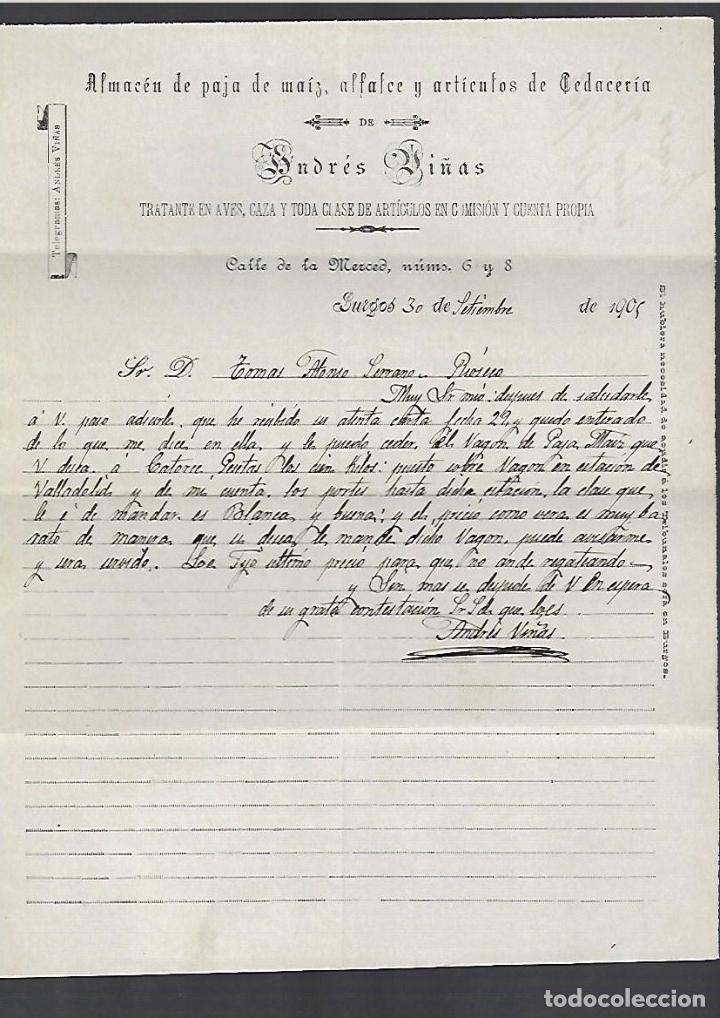 Almacén de paja de maíz, alfalce y artículos de Cedacería
DE
Andrés Viñas
TRATANTE EN AVES, CAZA Y TODA CLASE DE ARTÍCULOS EN COMISIÓN Y CUENTA PROPIA
Telegramas: ANDRÉS VIÑAS
Calle de la Merced, núms. 6 y 8
Burgos 30 de Setiembre de 1905
Sr. D. Tomas Alonso Serrano Rioseco
Muy Sr mio: despues de saludarle
á V. paso adecirle que he recibido su atenta carta fecha 29, y quedo enterado
de lo que me dice en ella, y le puedo ceder El Vagon de Paja Maiz que
V desea á Catorce Pesetas los cien Kilos: puesto sobre Vagon en estacion de
Valladolid y de mi cuenta los portes hasta dicha estacion, la clase que
le é de mandar es Blanca y buena; y el precio como vera es muy ba
rato de manera que si desea le mande dicho Vagon, puede avisarme
y sera servido. Los fijo ultimo precio para que no ande regateando
y Sin mas se despide de V En espera
de su grata contestacion Sr S de que loes
Andrés Viñas
Si hubiera necesidad de acudir á los Tribunales será en Burgos.
todocoleccion